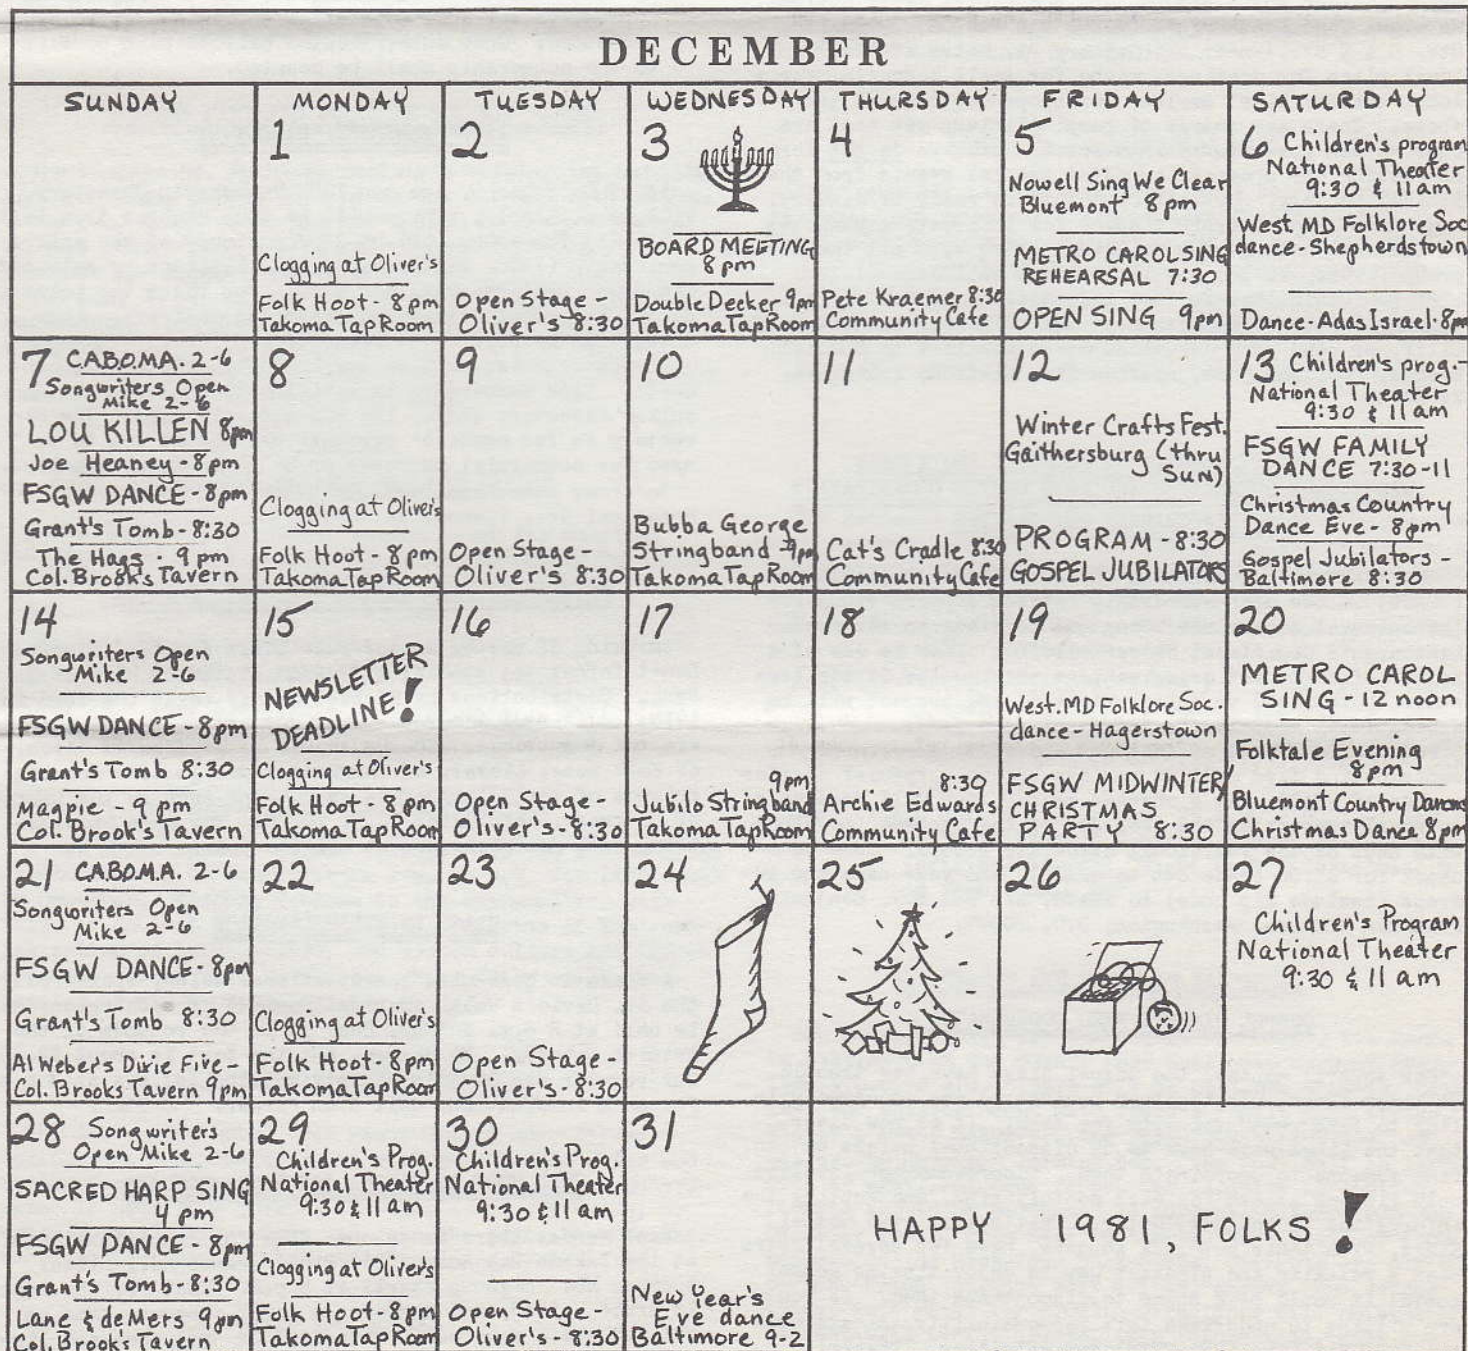 DECEMBER
SUNDAY MONDAY TUESDAY WEDNESDAY THURSDAY FRIDAY SATURDAY
1
Clogging at Oliver's
Folk Hoot - 8pm
Takoma Tap Room
2
Open Stage -
Oliver's 8:30
3
BOARD MEETING
8 pm
Double Decker 9pm
Takoma Tap Room
4
Pete Kraemer 8:30
Community Cafe
5
Nowell Sing We Clear
Bluemont 8pm
METRO CAROLSING
REHEARSAL 7:30
OPEN SING 9pm
6 Children's program
National Theater
9:30 & 11am
West. MD Folklore Soc
dance - Shepherdstown
Dance - Adas Israel - 8pm
7 C.A.B.O.M.A. 2-6
Songwriters Open
Mike 2-6
LOU KILLEN 8pm
Joe Heaney - 8pm
FSGW DANCE - 8pm
Grant's Tomb - 8:30
The Hags - 9 pm
Col. Brook's Tavern
8
Clogging at Oliver's
Folk Hoot - 8pm
Takoma Tap Room
9
Open Stage -
Oliver's 8:30
10
Bubba George
Stringband - 9pm
Takoma Tap Room
11
Cat's Cradle 8:30
Community Cafe
12
Winter Crafts Fest.
Gaithersburg (thru
Sun)
PROGRAM - 8:30
GOSPEL JUBILATORS
13 Children's prog. -
National Theater
9:30 & 11 am
FSGW FAMILY
DANCE 7:30-11
Christmas Country
Dance Eve - 8pm
Gospel Jubilators -
Baltimore 8:30
14
Songwriters Open
Mike 2-6
FSGW DANCE - 8pm
Grant's Tomb 8:30
Magpie - 9 pm
Col. Brook's Tavern
15
NEWSLETTER
DEADLINE!
Clogging at Oliver's
Folk Hoot - 8pm
Takoma Tap Room
16
Open Stage -
Oliver's - 8:30
17
9pm
Jubilo Stringband
Takoma Tap Room
18
8:30
Archie Edwards
Community Cafe
19
West. MD Folklore Soc.
dance - Hagerstown
FSGW MIDWINTER/
CHRISTMAS
PARTY 8:30
20
METRO CAROL
SING - 12 noon
Folktale Evening
8pm
Bluemont Country Dance
Christmas Dance 8pm
21 C.A.B.O.M.A. 2-6
Songwriters Open
Mike 2-6
FSGW DANCE - 8pm
Grant's Tomb 8:30
Al Weber's Dixie Five -
Col. Brooks Tavern 9pm
22
Clogging at Oliver's
Folk Hoot - 8pm
Takoma Tap Room
23
Open Stage -
Oliver's - 8:30
24
25
26
27
Children's Program
National Theater
9:30 & 11 am
28 Songwriter's
Open Mike 2-6
SACRED HARP SING
4 pm
FSGW DANCE - 8pm
Grant's Tomb - 8:30
Lane & deMers 9pm
Col. Brook's Tavern
29
Children's Prog.
National Theater
9:30 & 11 am
Clogging at Oliver's
Folk Hoot - 8pm
Takoma Tap Room
30
Children's Prog.
National Theater
9:30 & 11 am
Open Stage -
Oliver's - 8:30
31
New Year's
Eve dance
Baltimore 9-2
HAPPY 1981, FOLKS!